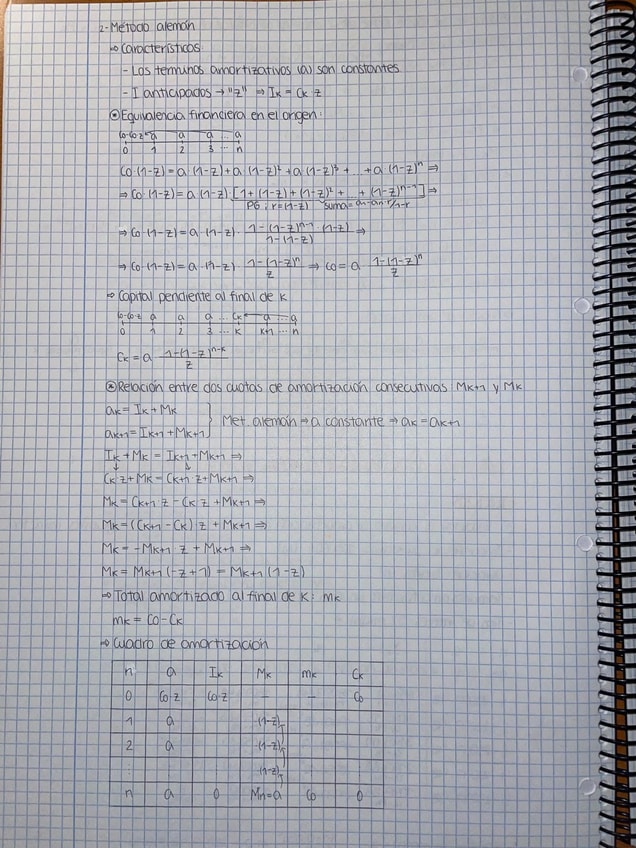 2- Método alemán
⇨ Características
- Los terminos amortizativos (a) son constantes
- I anticipados → "z" ⇒ Ik = Ck · z
⊙ Equivalencia financiera en el origen:
Co-Co·z a a a ... a
0 1 2 3 ... n
Co · (1-z) = a · (1-z) + a · (1-z)² + a · (1-z)³ + ... + a · (1-z)ⁿ ⇒
⇒ Co · (1-z) = a · (1-z) · [1 + (1-z) + (1-z)² + ... + (1-z)ⁿ⁻¹] ⇒
PG : r = (1-z) suma = a1-an·r/1-r
⇒ Co · (1-z) = a · (1-z) · 1-(1-z)ⁿ⁻¹ · (1-z) / 1-(1-z) ⇒
⇒ Co · (1-z) = a · (1-z) · 1-(1-z)ⁿ / z ⇒ Co = a · 1-(1-z)ⁿ / z
⇨ Capital pendiente al final de k
Co-Co·z a a a ... Ck a ... a
0 1 2 3 ... k k+1 ... n
Ck = a · 1-(1-z)ⁿ⁻ᵏ / z
⊙ Relación entre dos cuotas de amortización consecutivas: Mk+1 y Mk
ak = Ik + Mk
ak+1 = Ik+1 + Mk+1 } Met. alemán ⇒ a constante ⇒ ak = ak+1
Ik + Mk = Ik+1 + Mk+1 ⇒
Ck · z + Mk = Ck+1 · z + Mk+1 ⇒
Mk = Ck+1 · z - Ck · z + Mk+1 ⇒
Mk = (Ck+1 - Ck) · z + Mk+1 ⇒
Mk = -Mk+1 · z + Mk+1 ⇒
Mk = Mk+1 (-z+1) = Mk+1 (1-z)
⇨ Total amortizado al final de k: mk
mk = Co - Ck
⇨ Cuadro de amortización
n a Ik Mk mk Ck
0 Co·z Co·z - - Co
1 a ·(1-z)
2 a ·(1-z)
⋮ ⋮ ⋮ ·(1-z) ⋮ ⋮
n a 0 Mn=a Co 0